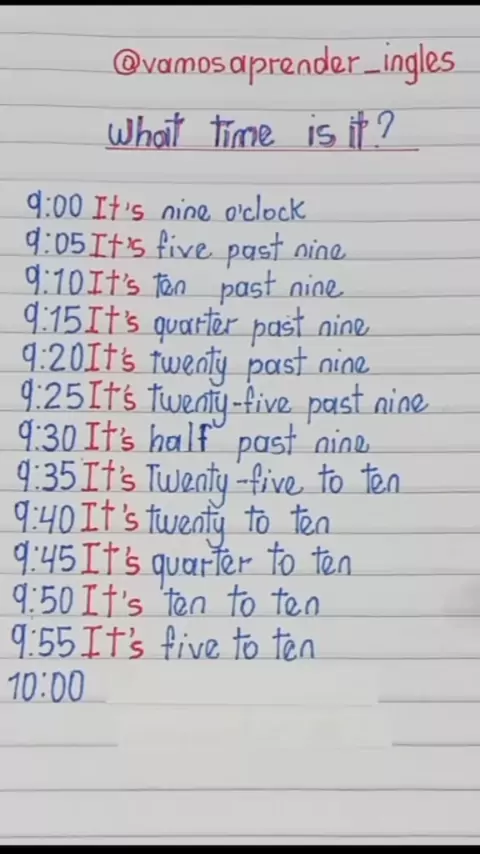 @vamosaprender_ingles
What time is it?
9:00 It's nine o'clock
9:05 It's five past nine
9:10 It's ten past nine
9:15 It's quarter past nine
9:20 It's twenty past nine
9:25 It's twenty-five past nine
9:30 It's half past nine
9:35 It's Twenty-five to ten
9:40 It's twenty to ten
9:45 It's quarter to ten
9:50 It's ten to ten
9:55 It's five to ten
10:00